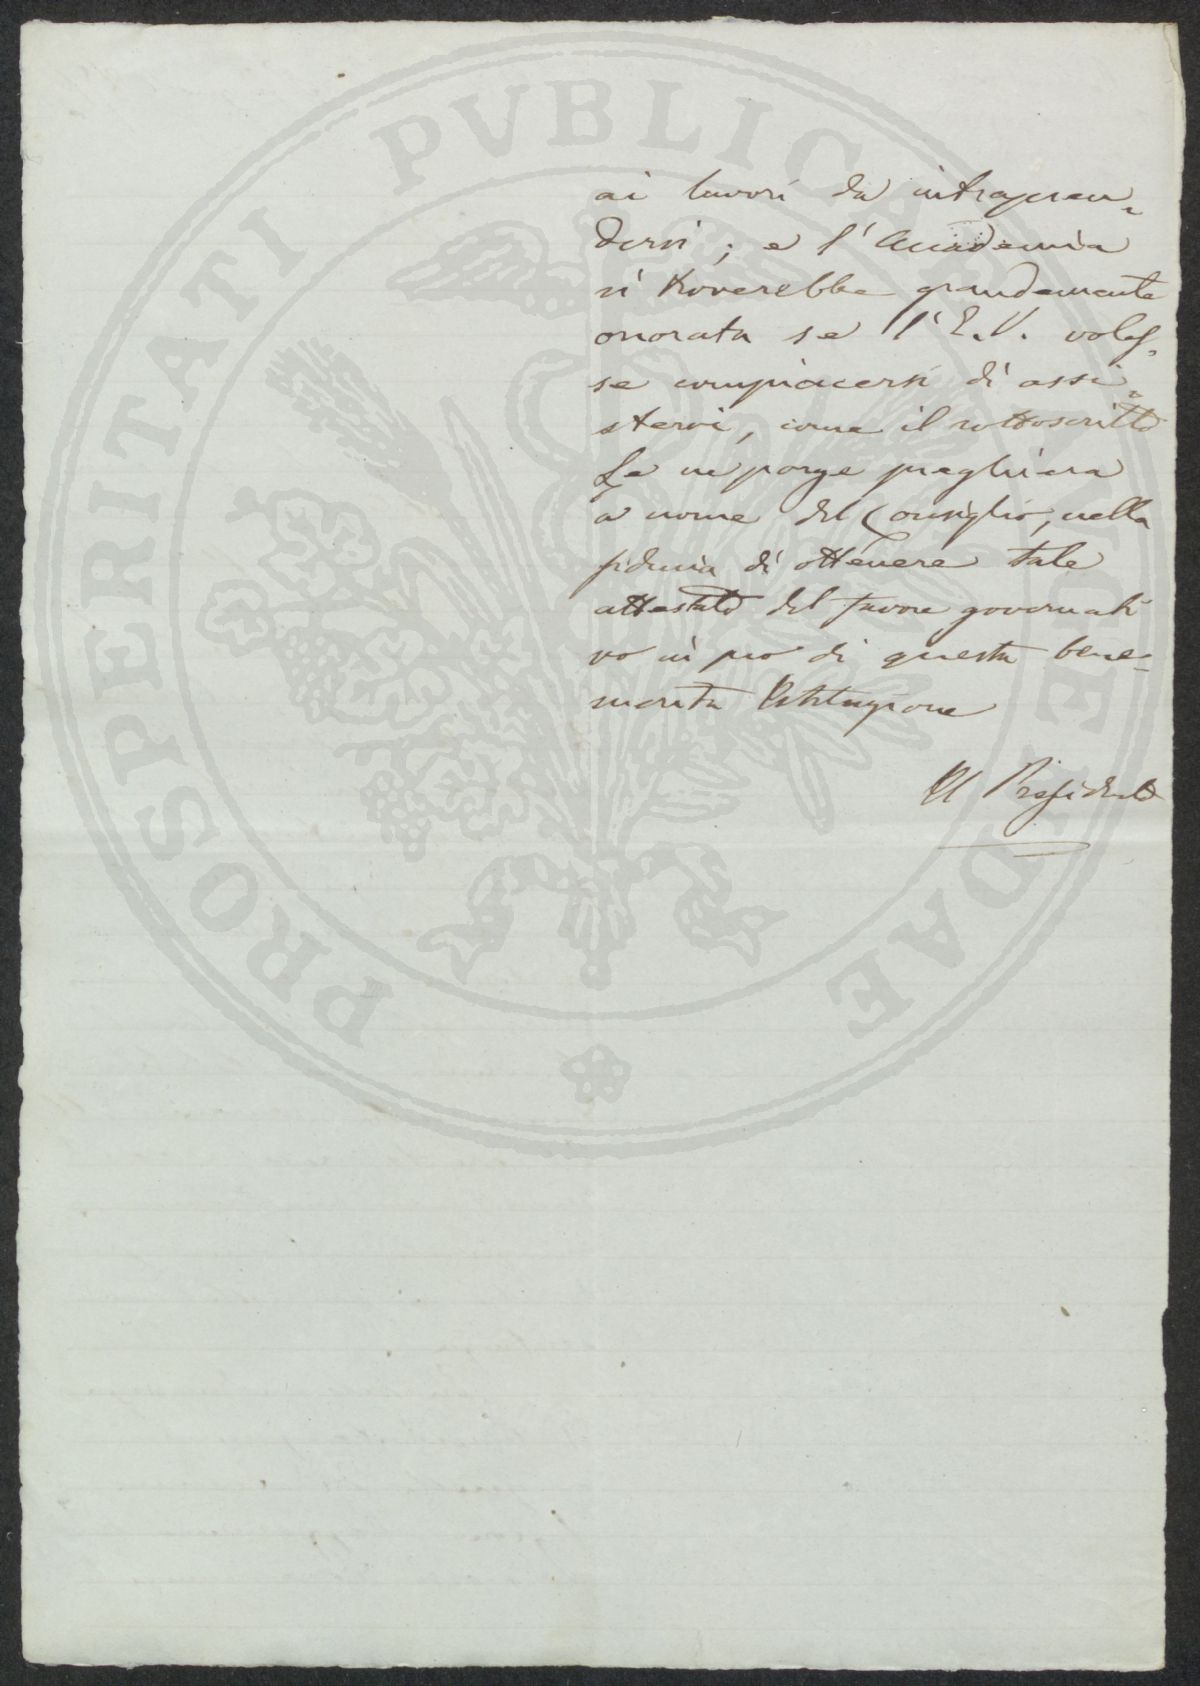 ai lavori da intrapren=
dersi; e l'Accademia
si troverebbe grandemente
onorata se l'E.V. voles=
se compiacersi di assi=
stervi, come il sottoscritto
Le ne porge preghiera
a nome del Consiglio, nella
fiducia di ottenere tale
attestato del favore governati
vo in pro di questa bene=
merita Istituzione
Il Presidente
PROSPERITATI PVBLICAE AVGENDAE